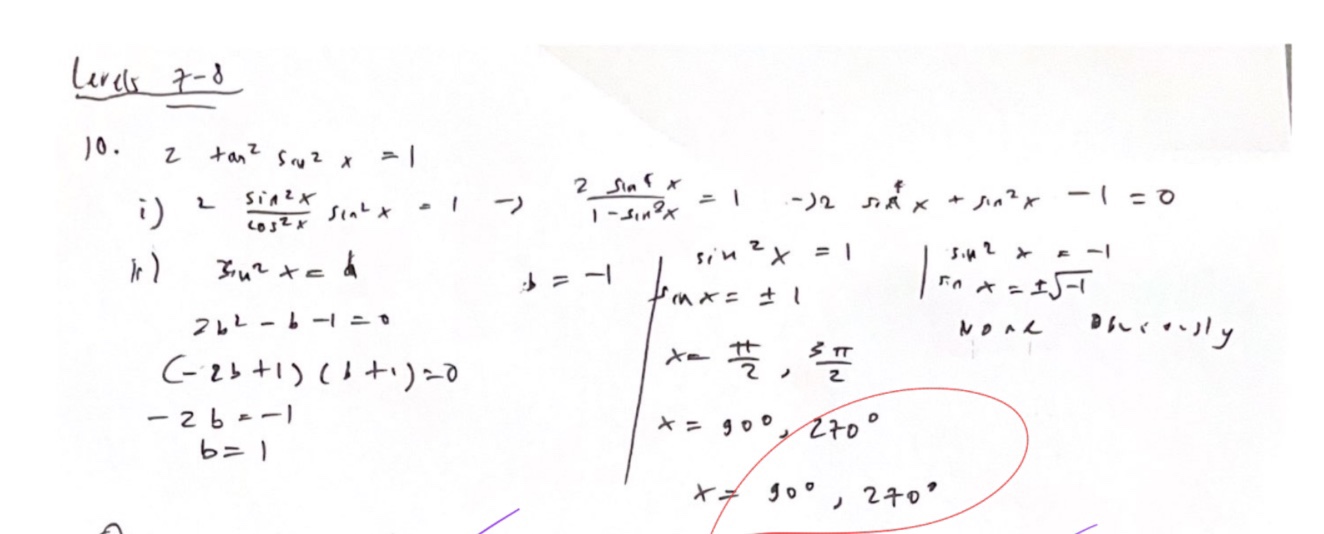 Levels 7-8
10. 2 tan² sin² x = 1
i) 2 sin²x/cos²x sin²x = 1 → 2 sin⁴x/1-sin²x = 1 → 2 sin⁴x + sin²x - 1 = 0
ii) sin²x = b
2b² - b - 1 = 0
(-2b+1)(b+1)=0
-2b = -1
b = 1
b = -1
sin²x = 1
sin x = ± 1
x = π/2, 3π/2
x = 90°, 270°
x = 90°, 270°
sin² x = -1
sin x = ±√-1
None Obviously